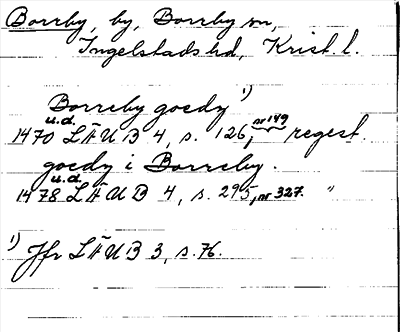 Borrby by, Borrby sn,
Ingelstads hd, Krist. l.
Borreby goedz ¹⁾
1470 u.d. LÄUB 4, s. 126, nr 149 regest.
goedz i Borreby.
1478 u.d. LÄUB 4, s. 295, nr 327. "
¹⁾ Jfr LÄUB 3, s. 76.